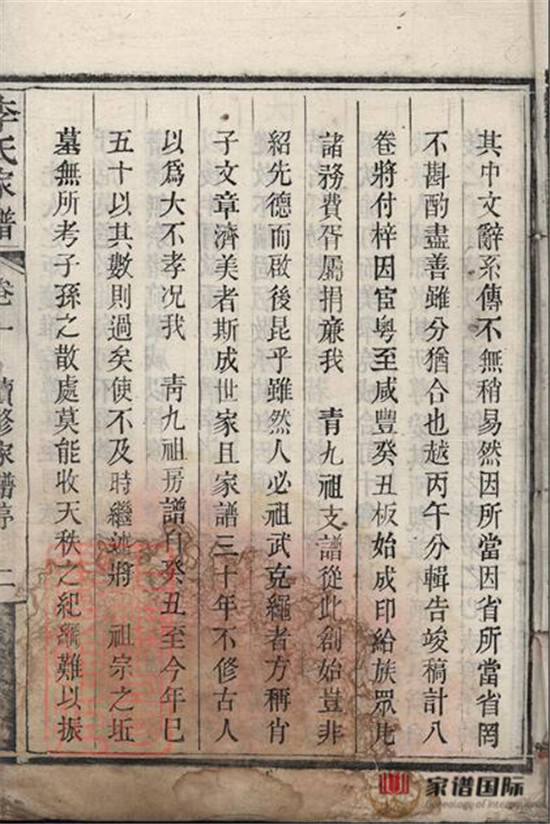 其中文辭系傳不無稍易然因所當因省所當省罔
不斟酌盡善雖分猶合也越丙午分輯告竣稿計八
卷將付梓因宦粵至咸豐癸丑板始成印給族眾凡
諸務費胥屬捐亷我 青九祖支譜從此創始豈非
紹先德而啟後昆乎雖然人必祖武克繩者方稱肖
子文章濟美者斯成世家且家譜三十年不修古人
以爲大不孝况我 青九祖房譜自癸丑至今年已
五十以其數則過矣使不及時繼述將 祖宗之坵
墓無所考子孫之散處莫能收天秩之紀綱難以振
李氏家譜 卷一 續修家譜序 二
家谱国际
Genealogy of International